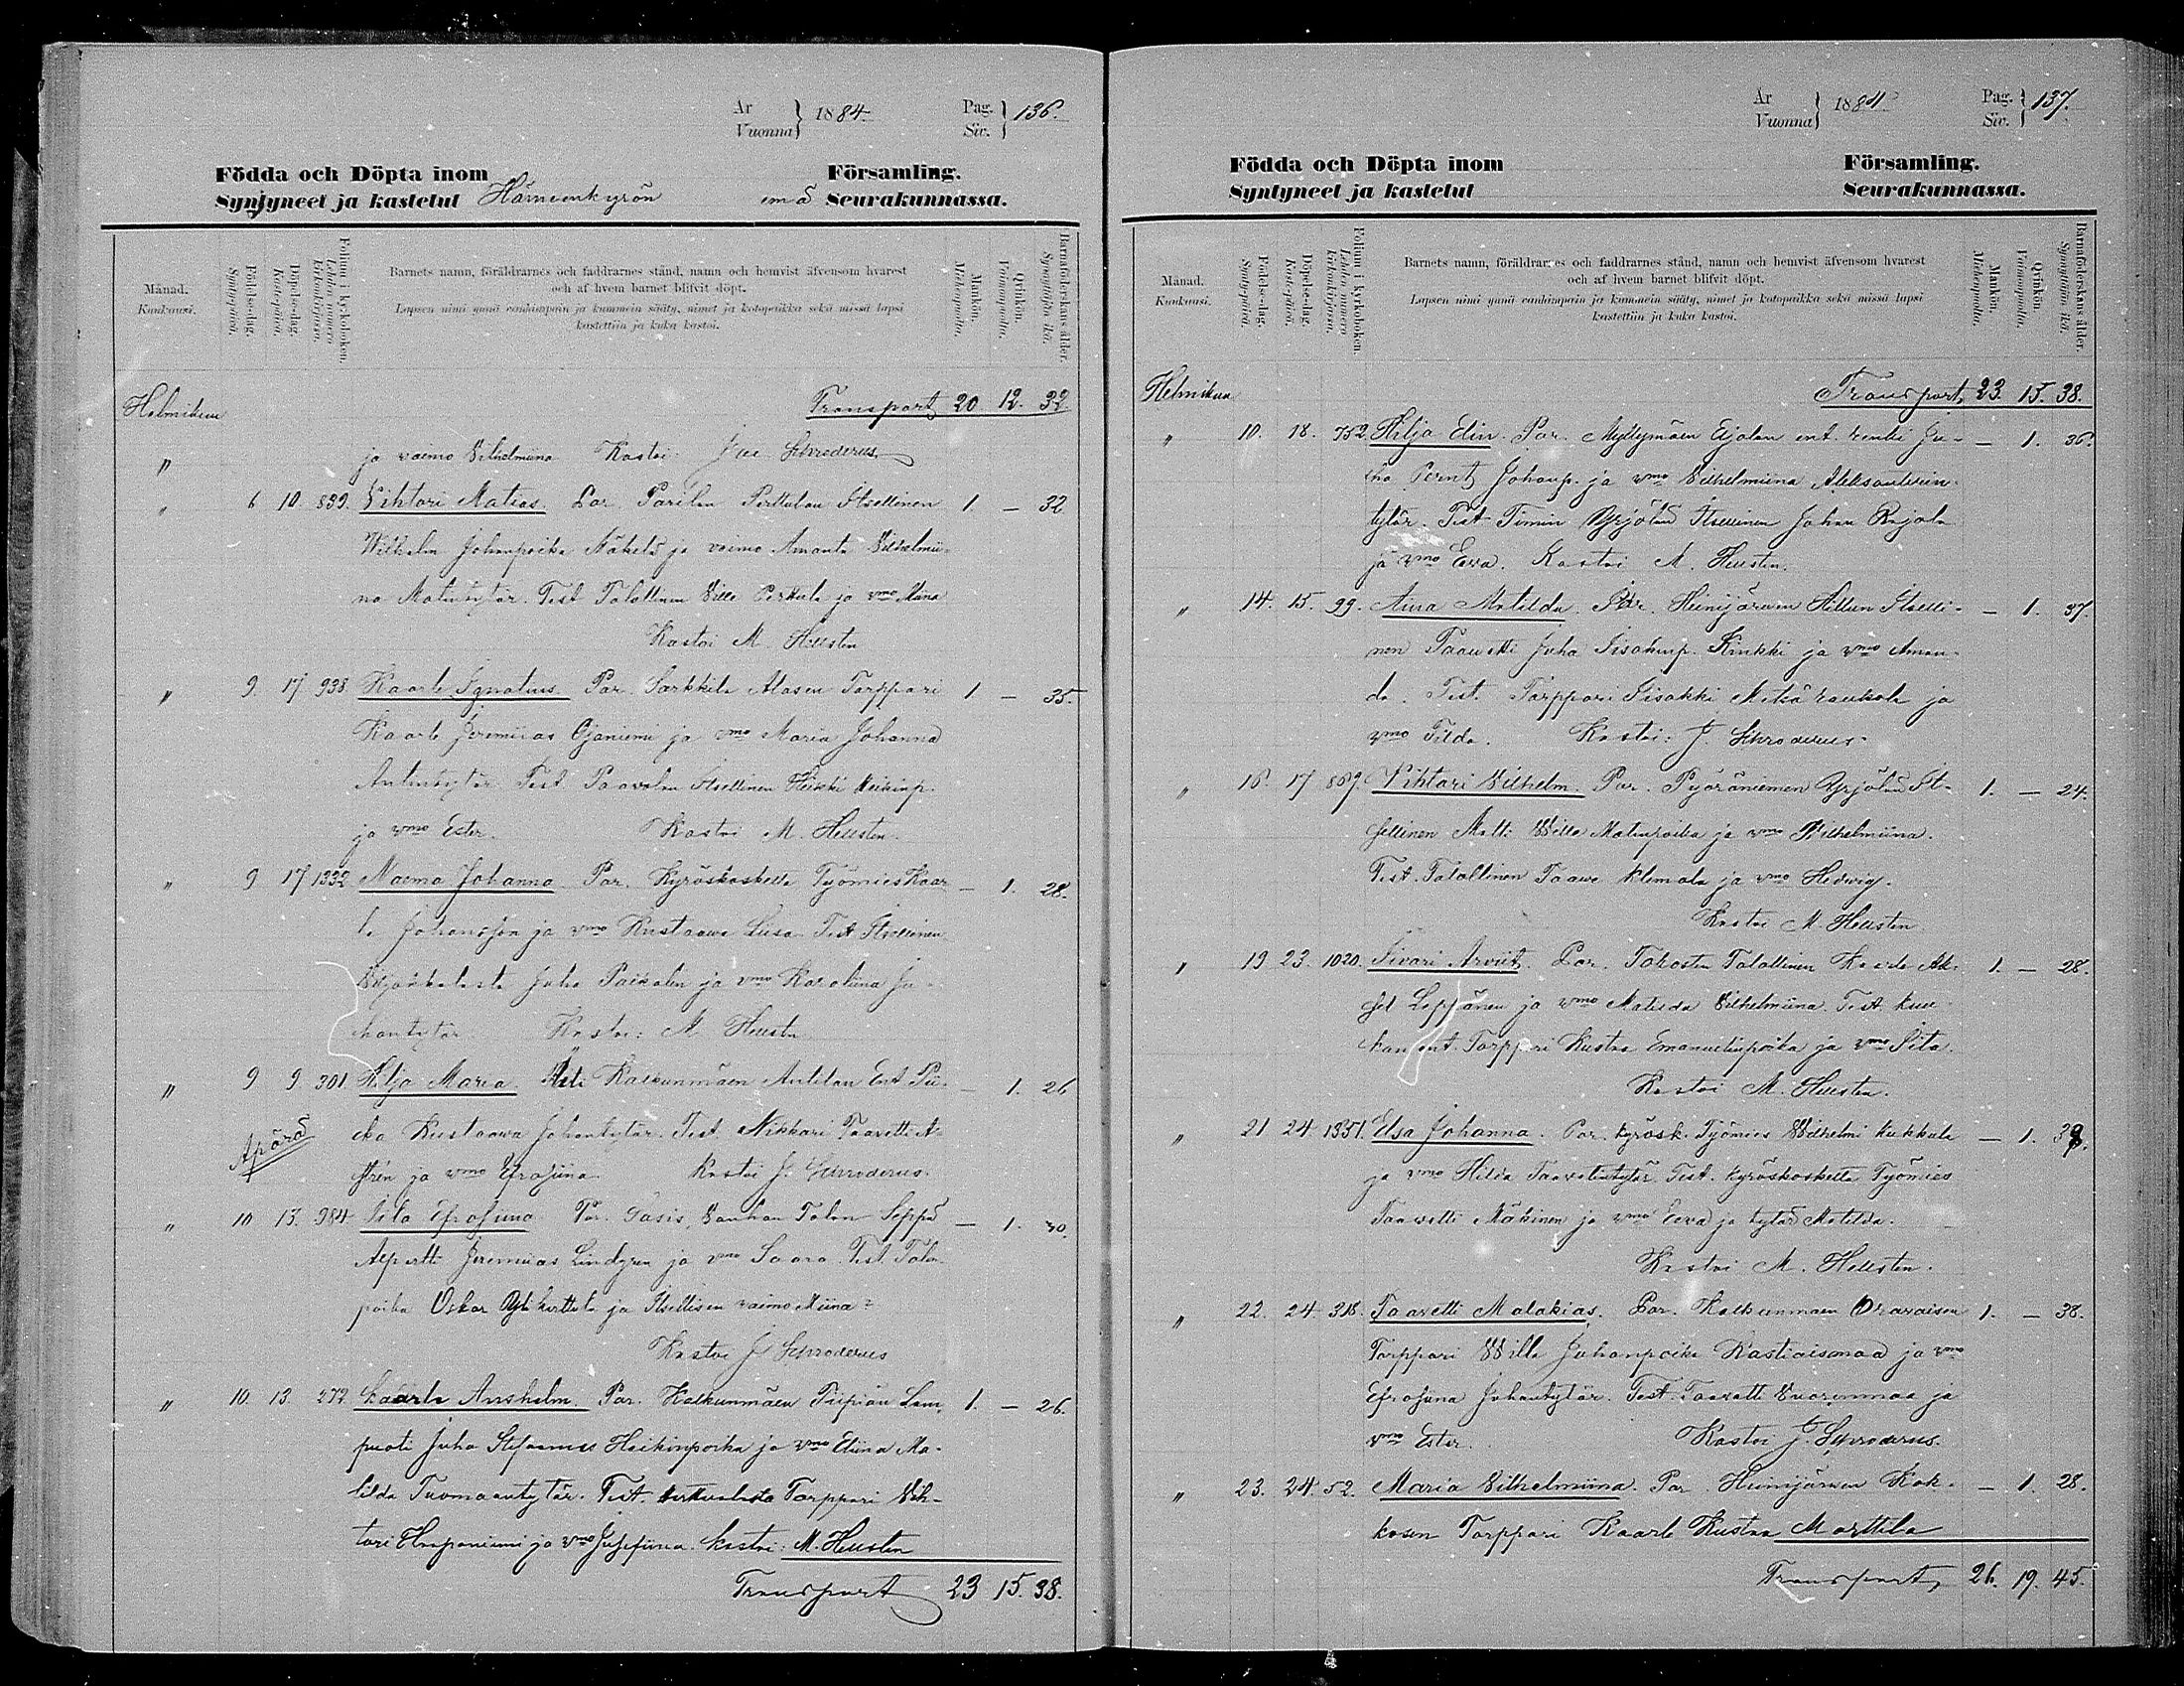 År
Vuonna } 1884. Pag.
Siv. } 136.
Födda och Döpta inom Församling.
Syntyneet ja kastetut Hämeenkyrön emä Seurakunnassa.
Månad.
Kuukausi.
Födelse-dag.
Syntypäivä.
Döpelse-dag.
Kastepäivä.
Folium i kyrkoboken.
Lehden numero kirkonkirjassa.
Barnets namn, föräldrarnes och faddrarnes stånd, namn och hemvist äfvensom hvarest
och af hvem barnet blifvit döpt.
Lapsen nimi ynnä vanhimpain ja kummein sääty, nimet ja kotopaikka sekä missä lapsi
kastettiin ja kuka kastoi.
Mankön.
Miehenpuolta.
Qvinkön.
Vaimonpuolta.
Barnaföderskans ålder.
Synnyttäjän ikä.
Helmikuu Transport 20. 12. 32.
" ja vaimo Vilhelmiina Kastoi J. Schroderus
" 6 10. 839. Vihtori Matias. Par. Parilan Perttulan Itsellinen 1 — 32
Wilhelm Johanpoika ja vaimo Amanta Vilhelmii-
na Matintytär. Test Talollinen Ville Perttula ja vmo Miina
Kastoi M. Hellsten
" 9. 17 938 Kaarle Ignatius. Par. Sarkkila Alasen Torppari 1 — 35.
Kaarle Jeremiias Ojaniemi ja vmo Maria Johanna
Antintytär Test. Paavolan Itsellinen Heikki Heikinp.
ja vmo Ester. Kastoi M. Hellsten.
" 9 17 1332 Naema Johanna Par. Kyröskoskella Työmies Kaar — 1. 28.
le Johansson ja vmo Kustaawa Liisa Test Itsellinen
Juho ja vmo Karoliina Ju-
hontytär Kastoi: M. Hellsten
" 9 9. 301. Hilja Maria. Äiti Kalkunmäen Anttilan Ent Pii- — 1. 26
Äpärä ka Kustaawa Johantytär. Test. Nikkari Taavetti
ja vmo Efrosiina Kastoi J. Schroderus.
" 10 13. 984 Iita Efrosiina Par. Vanhan Talon Seppä — 1. 30.
Alpertti Jeremiias Lindgren ja vmo Saara. Test. Talon
poika Oskar ja Itsellisen vaimo Miina
Kastoi J Schroderus
" 10. 13. 272 Kaarle Anshelm. Par. Kalkunmäen Piipiän Lam 1. — 26.
puoti Juho Stefanus Heikinpoika ja vmo Eliina Ma-
tilda Tuomaantytär. Test. Torppari Vih-
tori Haapaniemi ja vmo Josefiina. Kastoi: M. Hellsten
Transport 23 15. 38.
År
Vuonna } 1884 Pag.
Siv. } 137.
Födda och Döpta inom Församling.
Syntyneet ja kastetut Seurakunnassa.
Månad.
Kuukausi.
Födelse-dag.
Syntypäivä.
Döpelse-dag.
Kastepäivä.
Folium i kyrkoboken.
Lehden numero kirkonkirjassa.
Barnets namn, föräldrarnes och faddrarnes stånd, namn och hemvist äfvensom hvarest
och af hvem barnet blifvit döpt.
Lapsen nimi ynnä vanhimpain ja kummein sääty, nimet ja kotopaikka sekä missä lapsi
kastettiin ja kuka kastoi.
Mankön.
Miehenpuolta.
Qvinkön.
Vaimonpuolta.
Barnaföderskans ålder.
Synnyttäjän ikä.
Helmikuu Transport. 23. 15. 38.
" 10. 18. 752. Hilja Elin. Par. Myllymäen ent. renki Ju- — 1. 36.
ho Johanp. ja vmo Vilhelmiina Aleksanterin-
tytär. Test Timin Yrjölän Itsellinen Johan
ja vmo Eeva. Kastoi M. Hellsten.
" 14. 15. 99. Aina Matilda. Par. Heinijärwen Hillun Itselli- — 1. 37.
nen Taawetti Juho Iisakinp. Kinkki ja vmo Aman-
da. Test. Torppari Iisakki ja
vmo Tilda. Kastoi: J. Schroderus.
" 16. 17 869. Vihtori Vilhelm. Par. Pyöräniemen Yrjölän It- 1. — 24.
sellinen Matti Wille Matinpoika ja vmo Vilhelmiina.
Test. Talollinen Taawe Klemola ja vmo Hedwig.
Kastoi M. Hellsten
" 19 23. 1020. Iivari Arviit. Par. Tahosten Talollinen Kaarle Ak- 1. — 28.
sel Leppänen ja vmo Matilda Vilhelmiina. Test.
ent. Torppari Kustaa Emanuelinpoika ja vmo Iita.
Kastoi M. Hellsten.
" 21 24. 1351. Elsa Johanna. Par. kyrösk. Työmies Wilhelmi Kukkula — 1. 38.
ja vmo Hilda Taavetintytär. Test. kyröskoskella Työmies
Taawetti Mäkinen ja vmo Eeva ja tytär Matilda.
Kastoi M. Hellsten.
" 22. 24. 318. Taavetti Malakias. Par. Kalkunmäen Oravaisen 1. — 38.
Torppari Wille Juhanpoika Kastiaismaa ja vmo
Efrosiina Johantytär. Test. Taavetti Vuorenmaa ja
vmo Ester. Kastoi J. Schroderus.
" 23. 24. 52. Maria Vilhelmiina. Par. Heinijärwen Kok- — 1. 28.
kosen Torppari Kaarle Kustaa Marttila
Transport 26. 19. 45.